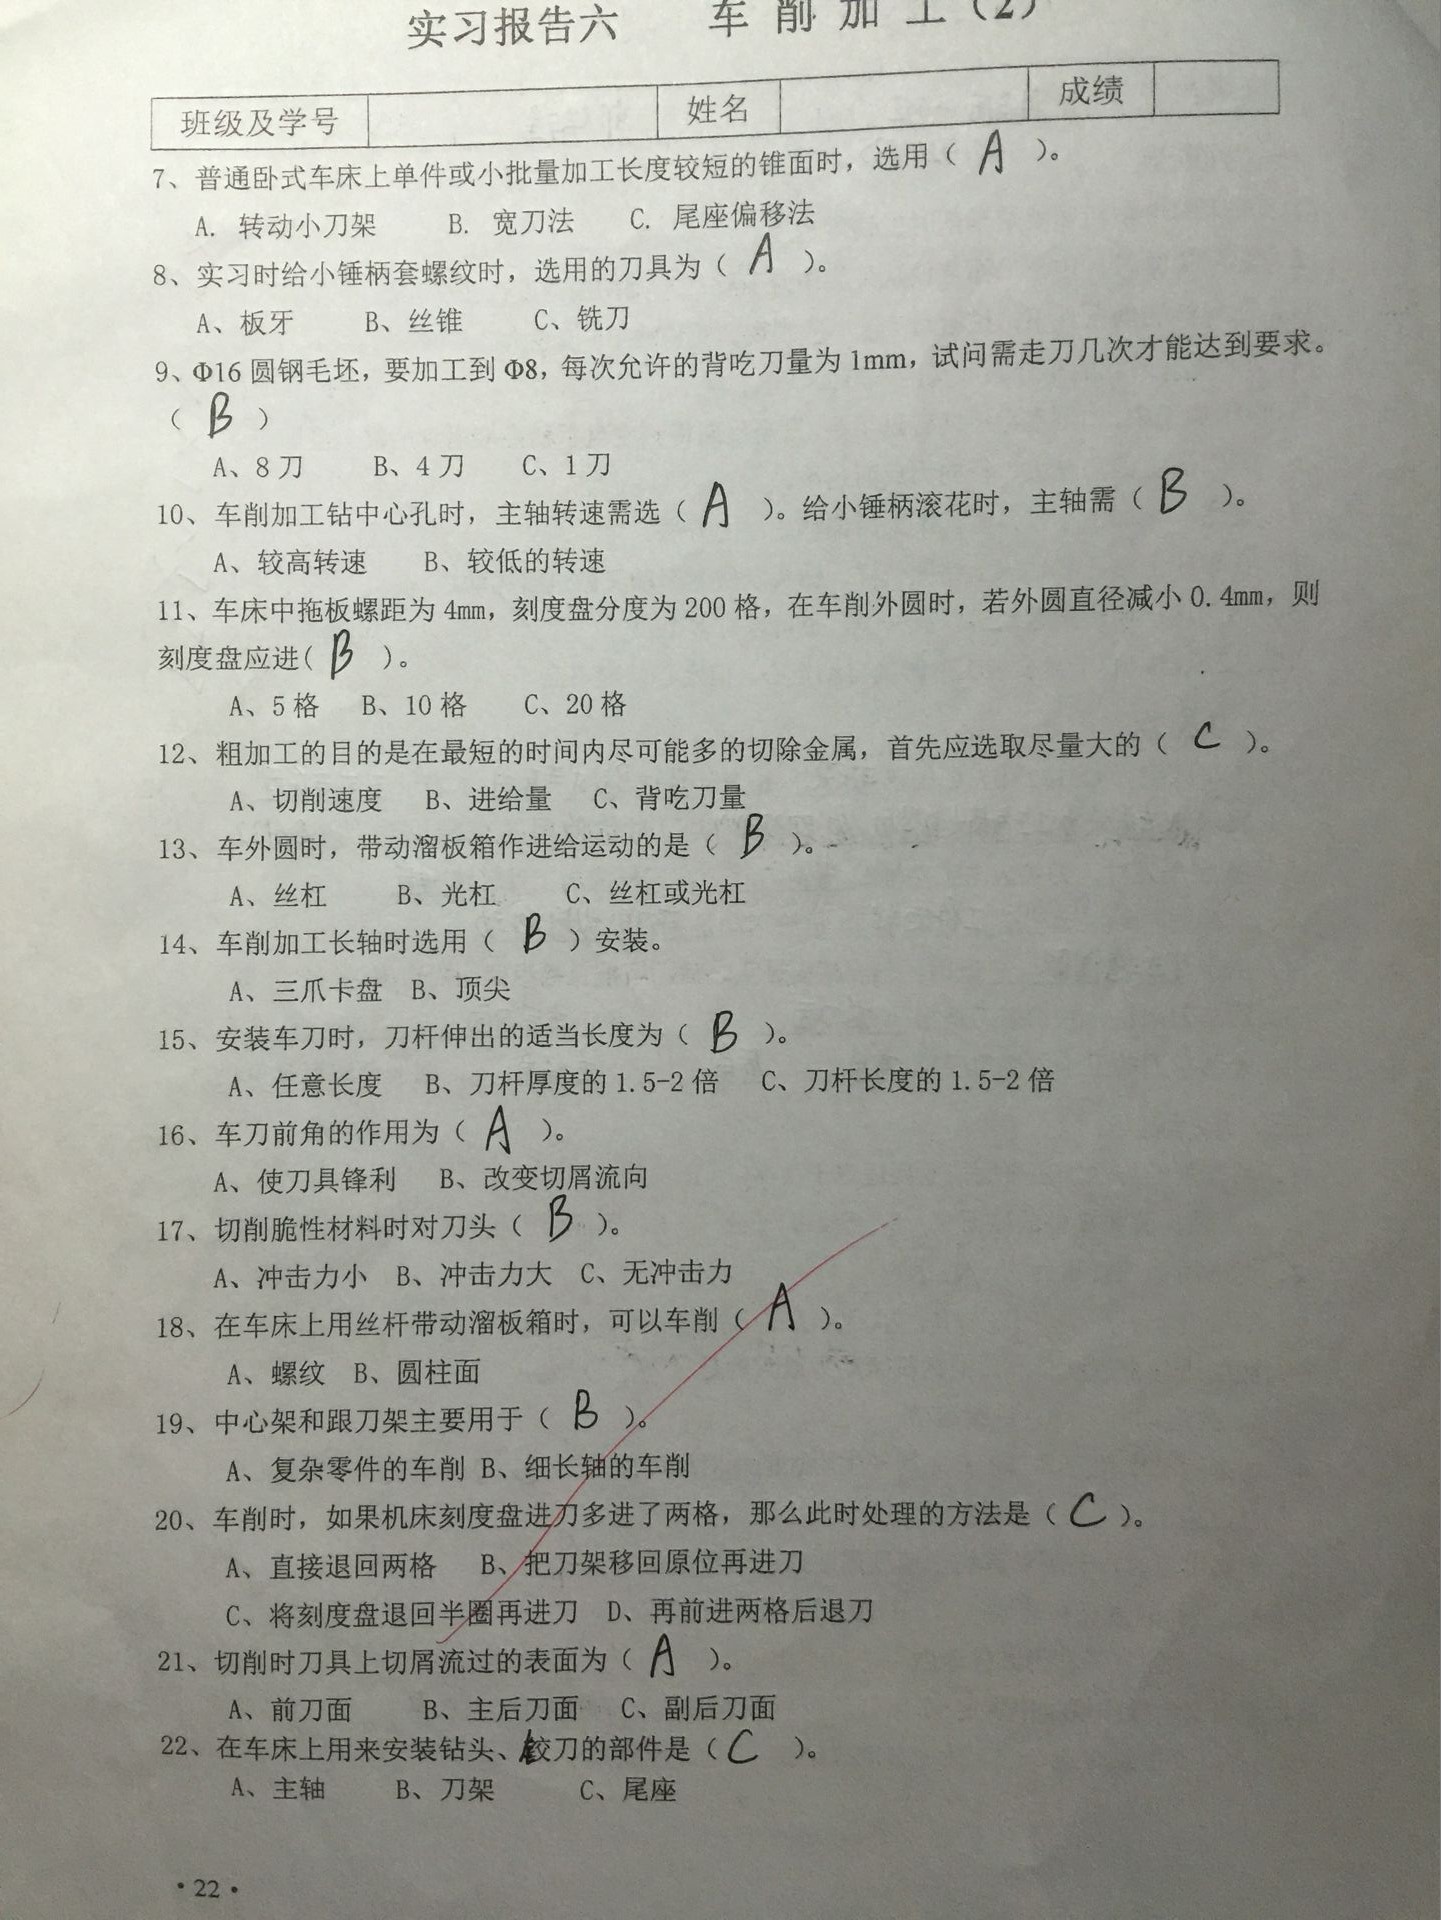 实习报告六 车削加工（2）
班级及学号 姓名 成绩
7、普通卧式车床上单件或小批量加工长度较短的锥面时，选用（ A ）。
A. 转动小刀架 B. 宽刀法 C. 尾座偏移法
8、实习时给小锤柄套螺纹时，选用的刀具为（ A ）。
A、板牙 B、丝锥 C、铣刀
9、Φ16圆钢毛坯，要加工到Φ8，每次允许的背吃刀量为1mm，试问需走刀几次才能达到要求。
（ B ）
A、8刀 B、4刀 C、1刀
10、车削加工钻中心孔时，主轴转速需选（ A ）。给小锤柄滚花时，主轴需（ B ）。
A、较高转速 B、较低的转速
11、车床中拖板螺距为4mm，刻度盘分度为200格，在车削外圆时，若外圆直径减小0.4mm，则
刻度盘应进( B )。
A、5格 B、10格 C、20格
12、粗加工的目的是在最短的时间内尽可能多的切除金属，首先应选取尽量大的（ C ）。
A、切削速度 B、进给量 C、背吃刀量
13、车外圆时，带动溜板箱作进给运动的是（ B ）。
A、丝杠 B、光杠 C、丝杠或光杠
14、车削加工长轴时选用（ B ）安装。
A、三爪卡盘 B、顶尖
15、安装车刀时，刀杆伸出的适当长度为（ B ）。
A、任意长度 B、刀杆厚度的1.5-2倍 C、刀杆长度的1.5-2倍
16、车刀前角的作用为（ A ）。
A、使刀具锋利 B、改变切屑流向
17、切削脆性材料时对刀头（ B ）。
A、冲击力小 B、冲击力大 C、无冲击力
18、在车床上用丝杆带动溜板箱时，可以车削（ A ）。
A、螺纹 B、圆柱面
19、中心架和跟刀架主要用于（ B ）。
A、复杂零件的车削 B、细长轴的车削
20、车削时，如果机床刻度盘进刀多进了两格，那么此时处理的方法是（ C ）。
A、直接退回两格 B、把刀架移回原位再进刀
C、将刻度盘退回半圈再进刀 D、再前进两格后退刀
21、切削时刀具上切屑流过的表面为（ A ）。
A、前刀面 B、主后刀面 C、副后刀面
22、在车床上用来安装钻头、铰刀的部件是（ C ）。
A、主轴 B、刀架 C、尾座
·22·